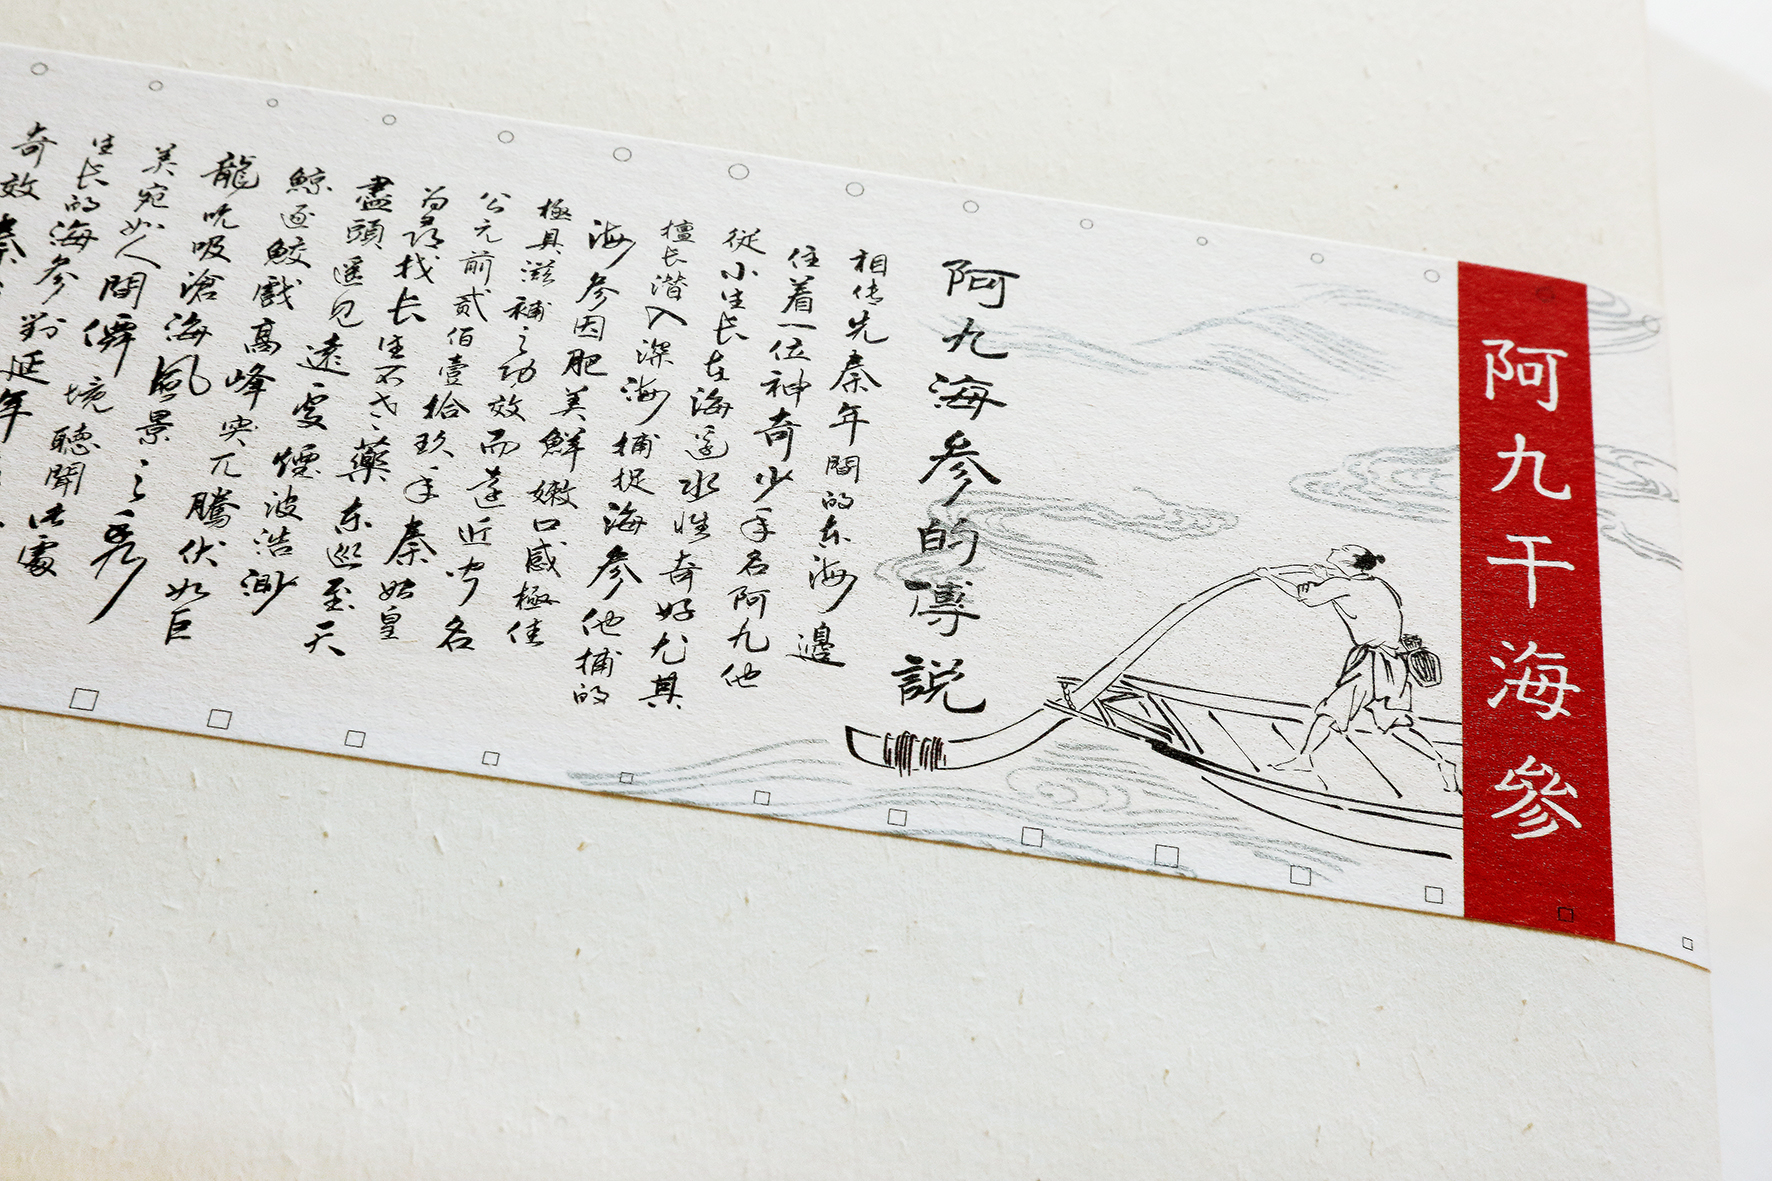 阿九干海參
阿九海参的傳説
相传先秦年間的东海邊
住着一位神奇少年名阿九他
從小生长在海邊水性奇好尤其
擅长潛入深海捕捉海参他捕的
海参因肥美鮮嫩口感極佳
極具滋補之功效而遠近闻名
公元前贰佰壹拾玖年秦始皇
为尋找长生不老之藥东巡至天
盡頭遥见遠處煙波浩渺
鲸逐鲛戲高峰突兀騰伏如巨
龍吮吸滄海風景之秀
美宛如人間僻境聽聞此處
生长的海参對
奇效秦
延年